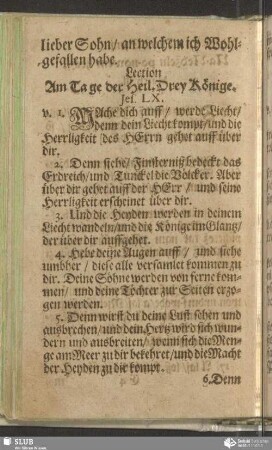 lieber Sohn / an welchem ich Wohl-
gefallen habe.
Lection
Am Tage der Heil. Drey Könige.
Jes. LX.
v. 1. MAche dich auff / werde Liecht /
denn dein Liecht kompt / und die
Herrligkeit des HErrn gehet auff über
dir.
2. Denn siehe / Finsterniß bedeckt das
Erdreich / und Tunckel die Völcker. Aber
über dir gehet auff der HErr / und seine
Herrligkeit erscheinet über dir.
3. Und die Heyden werden in deinem
Liecht wandeln / und die Könige im Glantz /
der über dir auffgehet.
4. Hebe deine Augen auff / und siehe
umbher / diese alle versamlet kommen zu
dir. Deine Söhne werden von ferne kom-
men / und deine Töchter zur Seiten erzo-
gen werden.
5. Denn wirst du deine Lust sehen und
ausbrechen / und dein Hertz wird sich wun-
dern und ausbreiten / wenn sich die Men-
ge am Meer zu dir bekehret / und die Macht
der Heyden zu dir kompt.
6. Denn
SLUB
Wir führen Wissen.